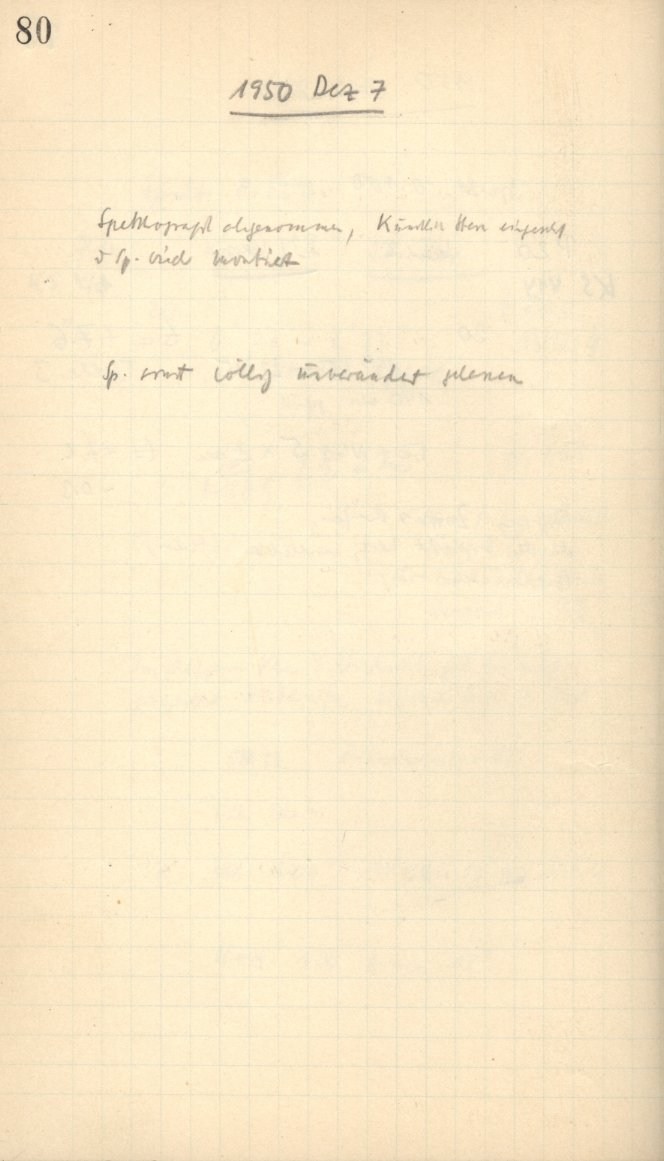 80
1950 Dez 7
Spektrograph abgenommen, Künstl. Stern eingesetzt
Sp. wird montiert
Sp. sonst völlig unverändert gelassen